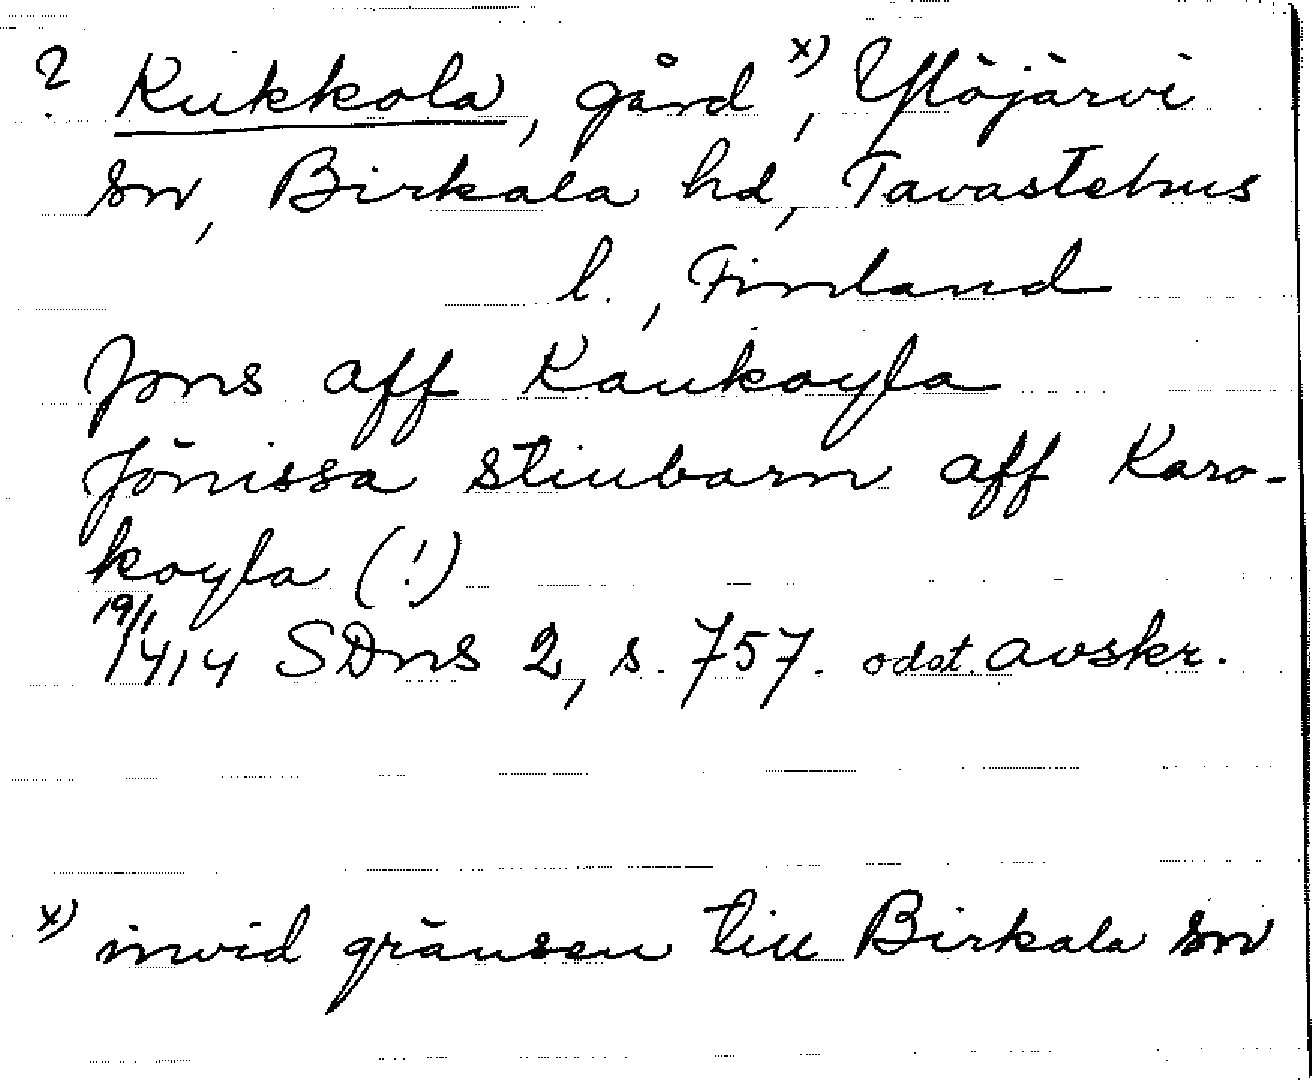 ? Kukkola, gård x), Ylöjärvi
sn, Birkala hd, Tavastehus
l., Finland
Jons aff Kaukoyla
Jönissa stiubarn aff Karo-
koyla (!)
19/1 1414 SDns 2, s. 757. odat. avskr.
x) invid gränsen till Birkala sn